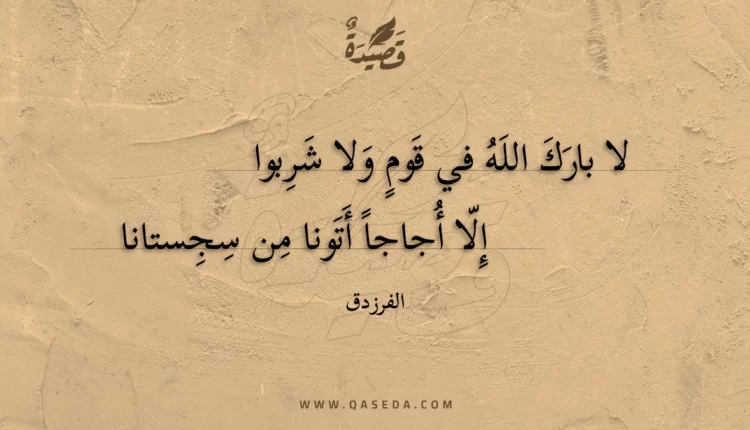 قَصِيدَةٌ
لا بارَكَ اللَهُ في قَومٍ وَلا شَرِبوا
إِلّا أُجاجاً أَتَونا مِن سِجِستانا
الفرزدق
WWW.QASEDA.COM